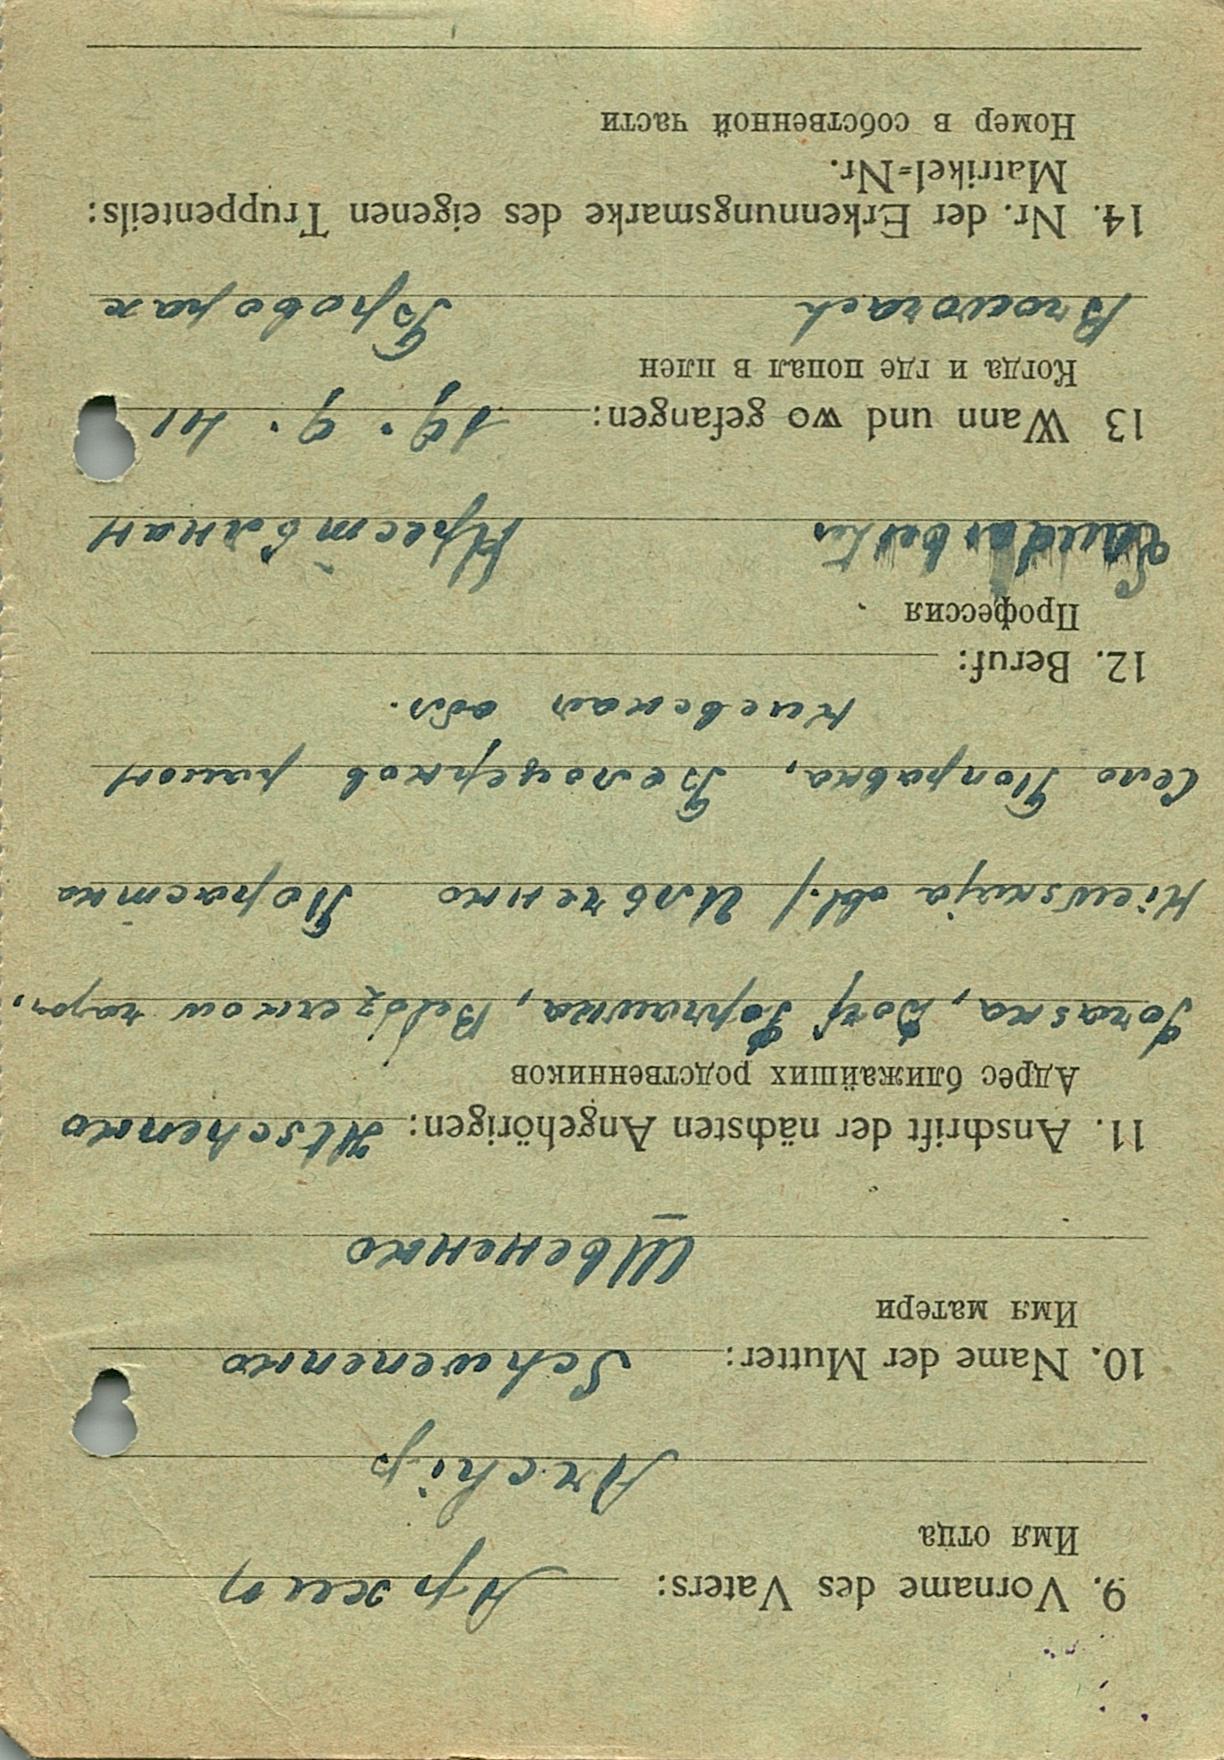 9. Vorname des Vaters: Архип
Имя отца
Archip
10. Name der Mutter: Schwenenko
Имя матери
Швененко
11. Anschrift der nächsten Angehörigen: Iltschenko
Адрес ближайших родственников
Poraska, Dorf Poprawka, Belozerkow rayon,
Kiewskaja obl./ Ильченко
Село Поправка, Белоцерков район
Киевская обл.
12. Beruf:
Профессия
Landarbeiter Крестьянан
13 Wann und wo gefangen: 19. 9. 41
Когда и где попал в плен
Browarach Броворах
14. Nr. der Erkennungsmarke des eigenen Truppenteils:
Matrikel=Nr.
Номер в собственной части